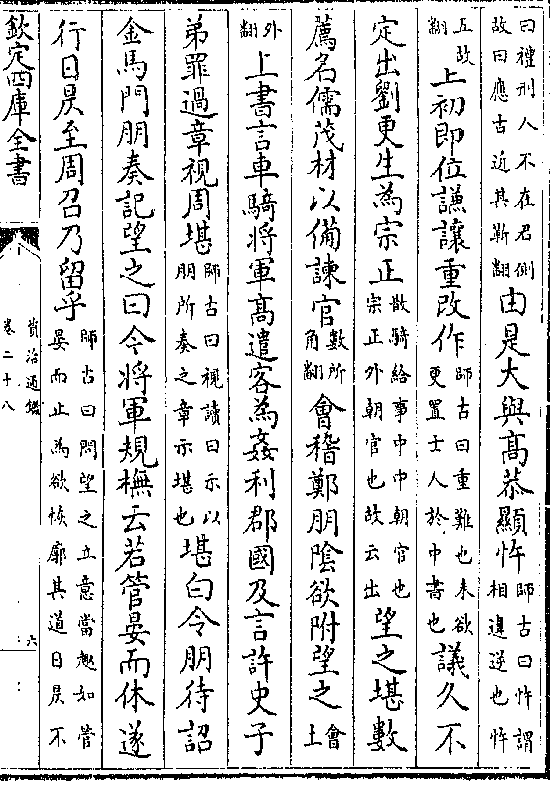 曰禮刑人不在君側故曰應古近其靳翻由是大與髙恭顯忤師古曰忤謂相違逆也忤
五故翻上初即位謙讓重改作師古曰重難也未欲更置士人於中書也議久不
定出劉更生為宗正散騎給事中中朝官也宗正外朝官也故云出望之堪數
薦名儒茂材以備諫官數所角翻會稽鄭朋陰欲附望之會土
外翻上書言車騎將軍髙遣客為姦利郡國及言許史子
弟罪過章視周堪師古曰視讀曰示以朋所奏之章示堪也堪白令朋待詔
金馬門朋奏記望之曰今將軍規橅云若管晏而休遂
行日昃至周召乃留乎師古曰問望之立意當趣如管晏而止為欲恢廓其道日昃不
欽定四庫全書
資治通鑑
卷二十八
六